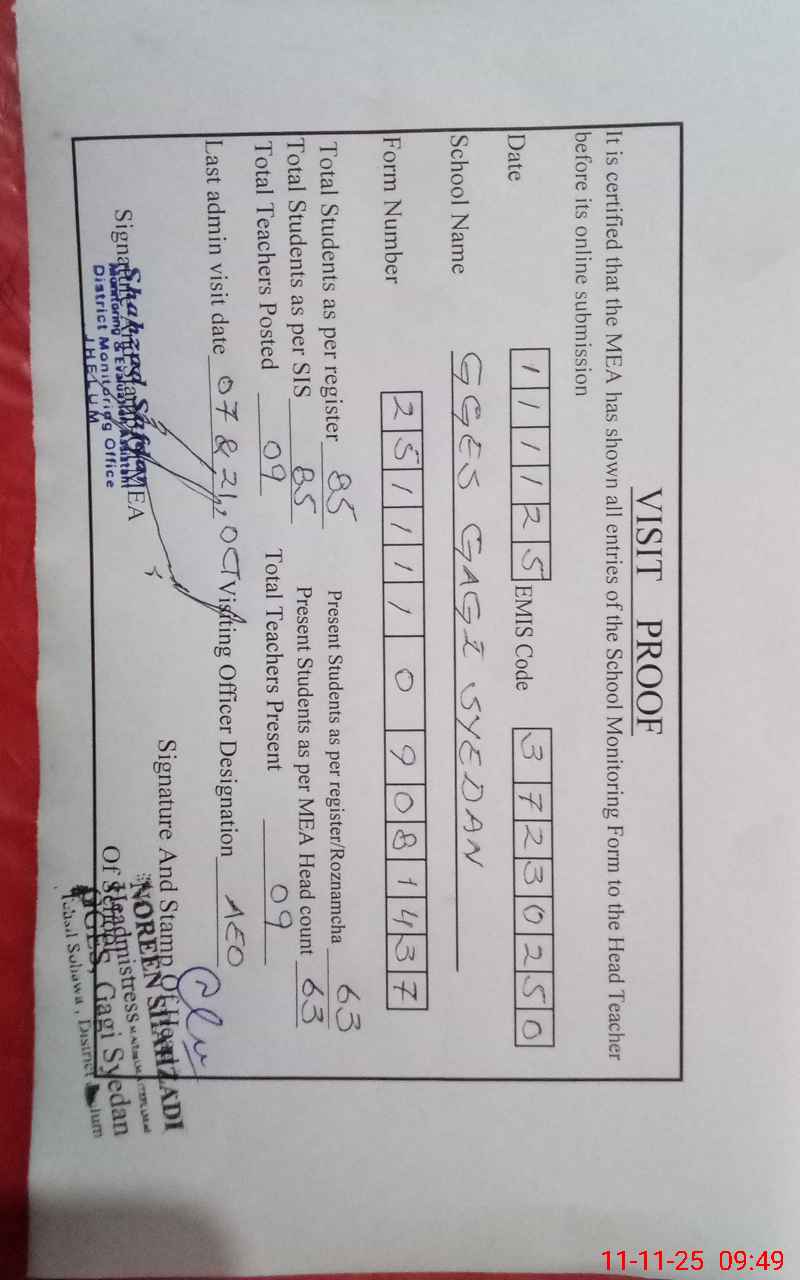 VISIT PROOF
It is certified that the MEA has shown all entries of the School Monitoring Form to the Head Teacher
before its online submission
Date 1 1 1 1 2 5 EMIS Code 3 7 2 3 0 2 5 0
School Name GGES GAGI SYEDAN
Form Number 2 5 1 1 1 1 0 9 0 8 1 4 3 7
Total Students as per register 85 Present Students as per register/Roznamcha 63
Total Students as per SIS 85 Present Students as per MEA Head count 63
Total Teachers Posted 09 Total Teachers Present 09
Last admin visit date 07 & 21, Visiting Officer Designation AEO
Signature And Stamp Of MEA
Monitoring & Evaluation Assistant
District Monitoring Office
JHELUM
Signature And Stamp Of Head
Of School
NOREEN SHAHZADI
Headmistress
GGES, Gagi Syedan
Tehsil Sohawa, District Jhelum
11-11-25 09:49